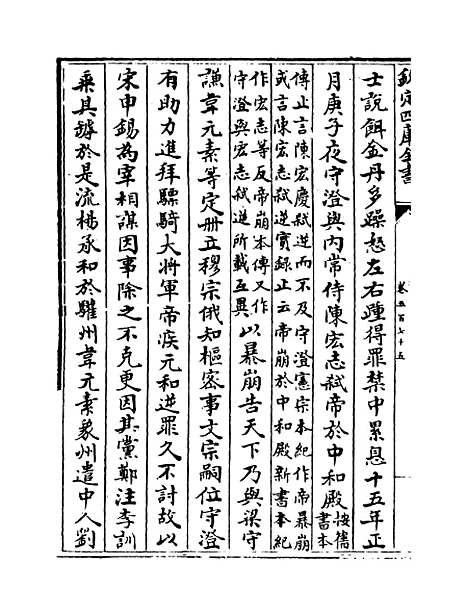 欽定四庫全書
卷五百七十五
士說餌金丹多躁怒左右踵得罪禁中累息十五年正
月庚子夜守澄與内常侍陳宏志弑帝於中和殿按舊書本
傳止言陳宏慶弑逆而不及守澄憲宗本紀作帝暴崩
或言陳宏志弑逆實錄止云帝崩於中和殿新書本紀
作宏志等反帝崩本傳又作
守澄與宏志弑逆所載互異以暴崩告天下乃與梁守
謙韋元素等定冊立穆宗俄知樞密事文宗嗣位守澄
有助力進拜驃騎大將軍帝疾元和逆罪久不討故以
宋申錫為宰相謀因事除之不克更因其黨鄭注李訓
乘其罅於是流楊承和於驩州韋元素象州遣中人劉